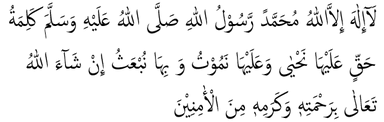 لَآإِلٰهَ إِلاَّاللهُ مُحَمَّدٌ رَّسُوْلُ اللهِ صَلَّى اللهُ عَلَيْهِ وَسَلَّمَ كَلِمَةُ
حَقٍّ عَلَيْهَا نَحْيٰى وَعَلَيْهَا نَمُوْتُ وَ بِهَا نُبْعَثُ إِنْ شَآءَ اللهُ
تَعَالٰى بِرَحْمَتِهٖ وَكَرَمِهٖ مِنَ الْأٰمِنِيْنَ